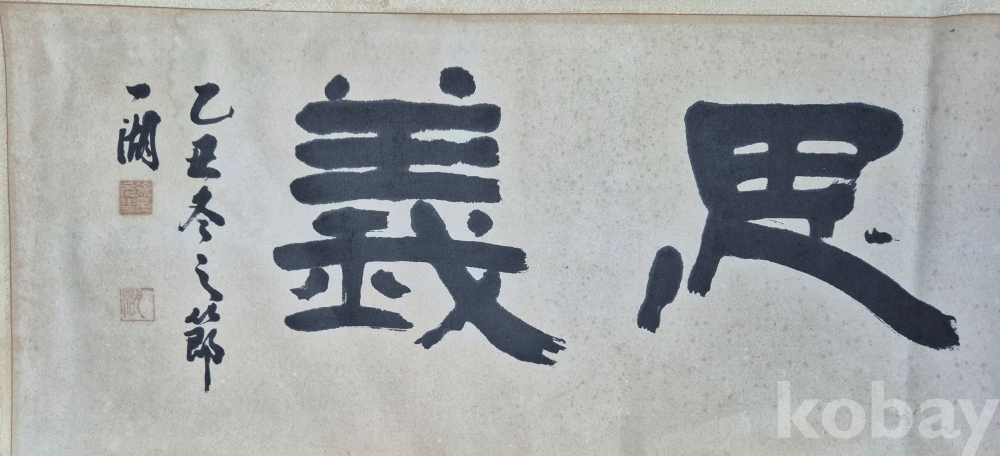 思義
乙丑冬之節
一湖
kobay